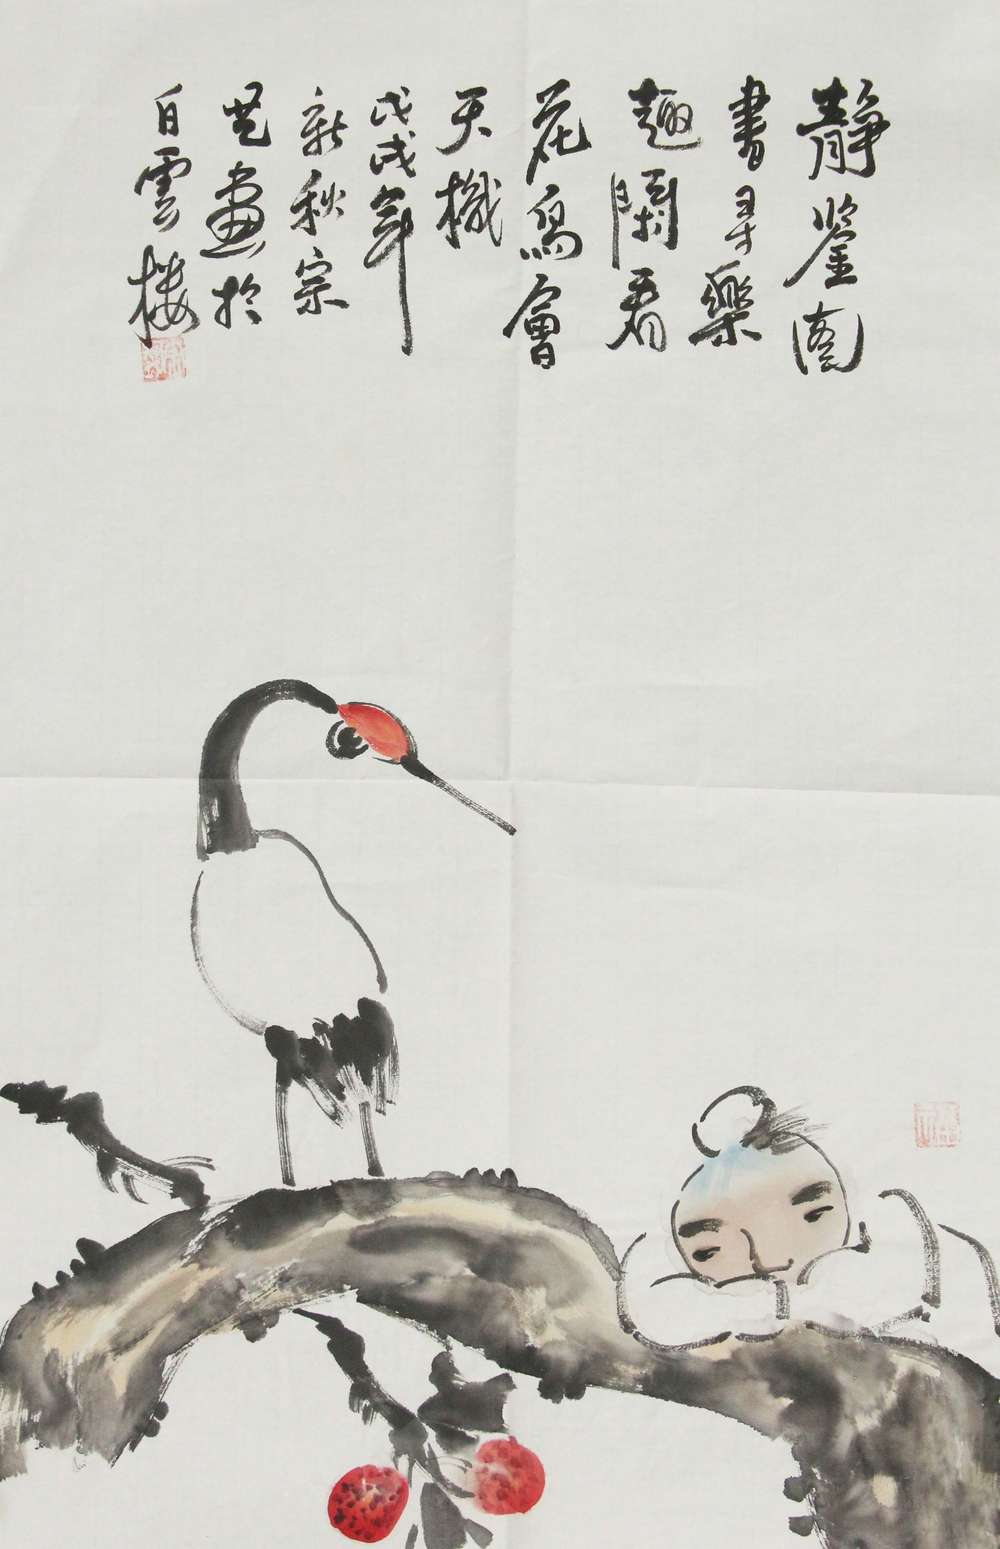 靜鉴圖
書尋樂
趣閑看
花鳥會
天機
戊戌年
新秋宗
思畫於
白雲楼